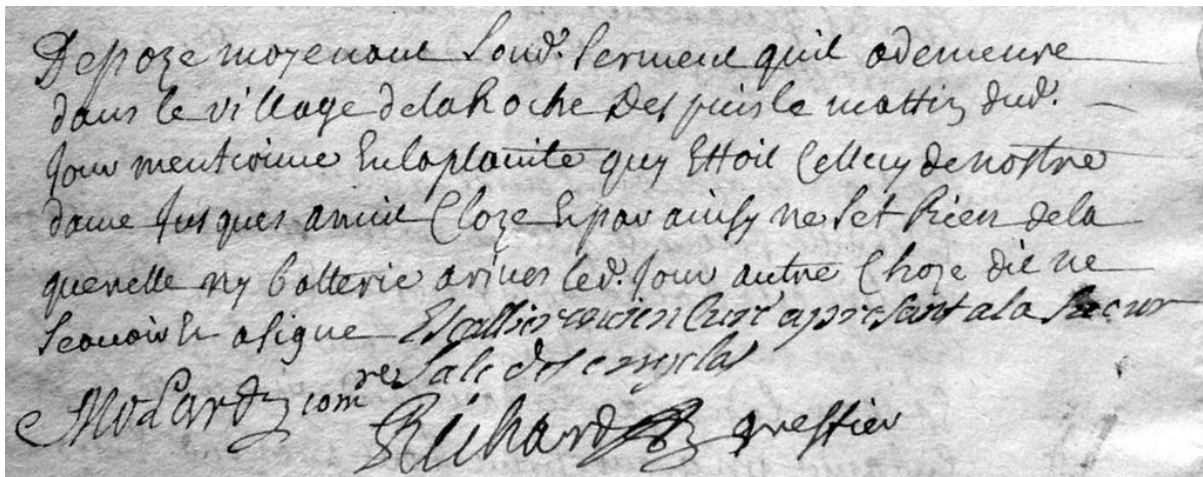 Depoze moyenant Sond.t serment quil a demeure
dans le village de la Roche Despuis le mattin dud.
Jour mentionne En la plainte quy Ettoit Celluy de nostre
dame Jusques a nuit Cloze Et par ainsy ne Set Rien de la
querelle ny batterie arivee led. Jour autre Choze dit ne
Scauoir Et a signe ancien Curé apresant a la
Sale
com.re
Richard greffier